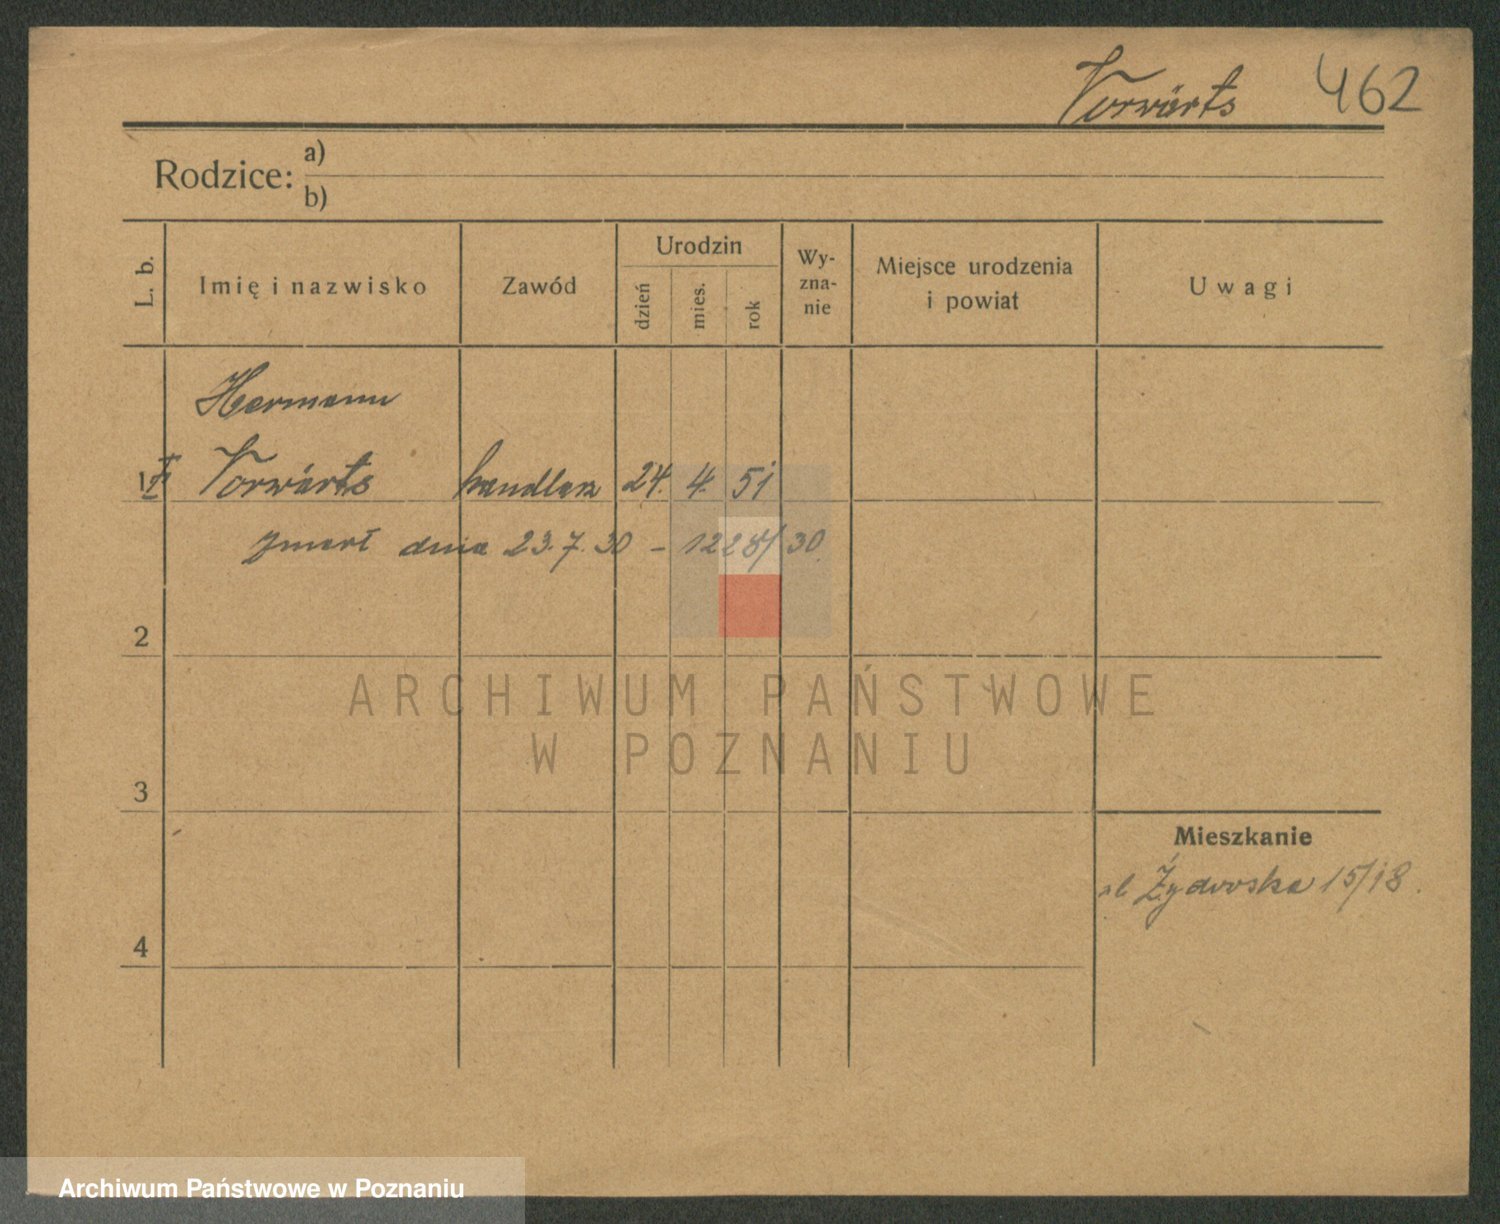 Vorwärts 462
Rodzice: a)
b)
L. b.
Imię i nazwisko
Zawód
Urodzin
dzień
mies.
rok
Wy-
zna-
nie
Miejsce urodzenia
i powiat
Uwagi
Hermann
1 Vorwärts handlarz 24. 4. 51
zmarł dnia 23.7.30 – 1228/30
2
ARCHIWUM PAŃSTWOWE
W POZNANIU
3
Mieszkanie
ul Żydowska 15/18.
4
Archiwum Państwowe w Poznaniu